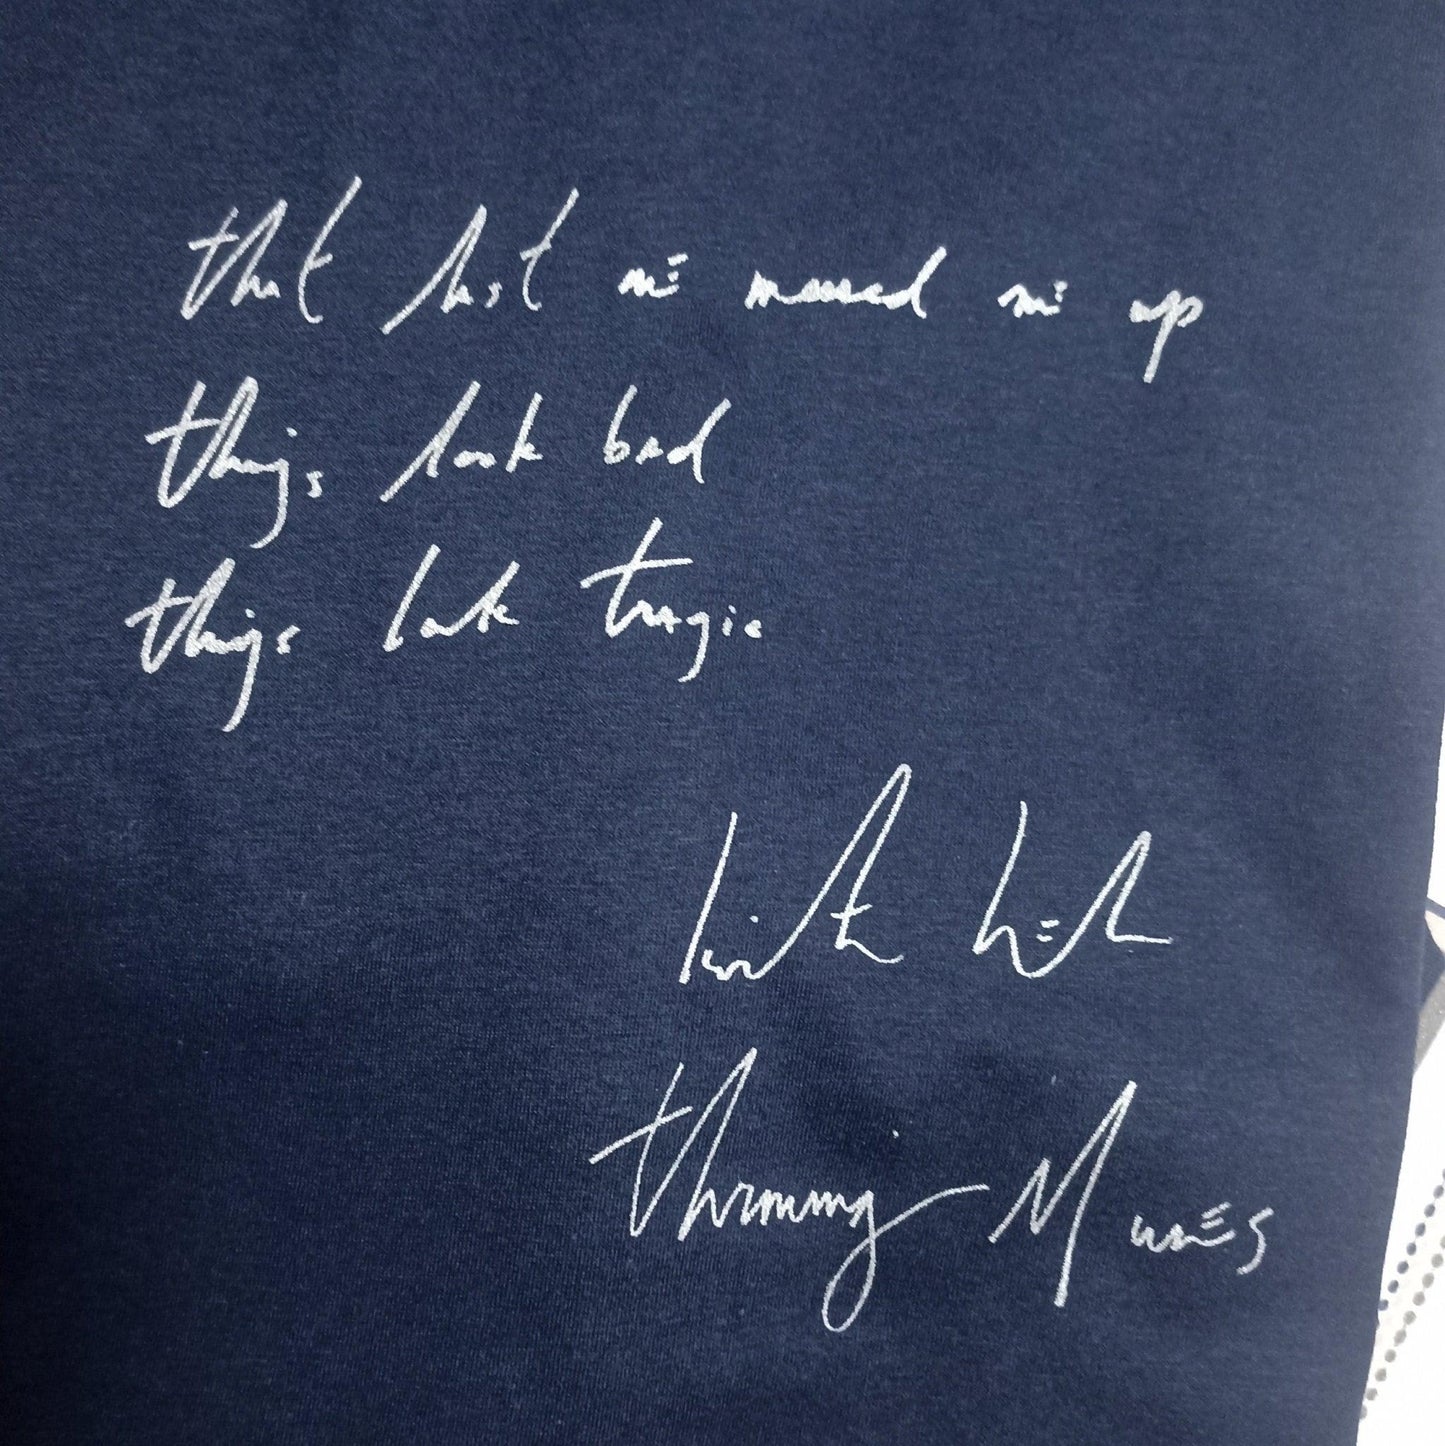 that last one messed me up
things look bad
things look tragic
Kristin Hersh
Throwing Muses